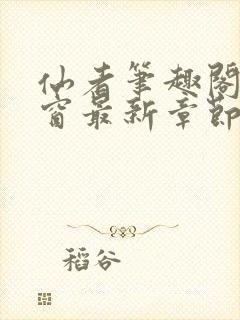 仙者笔趣阁
窗最新章节
稻谷